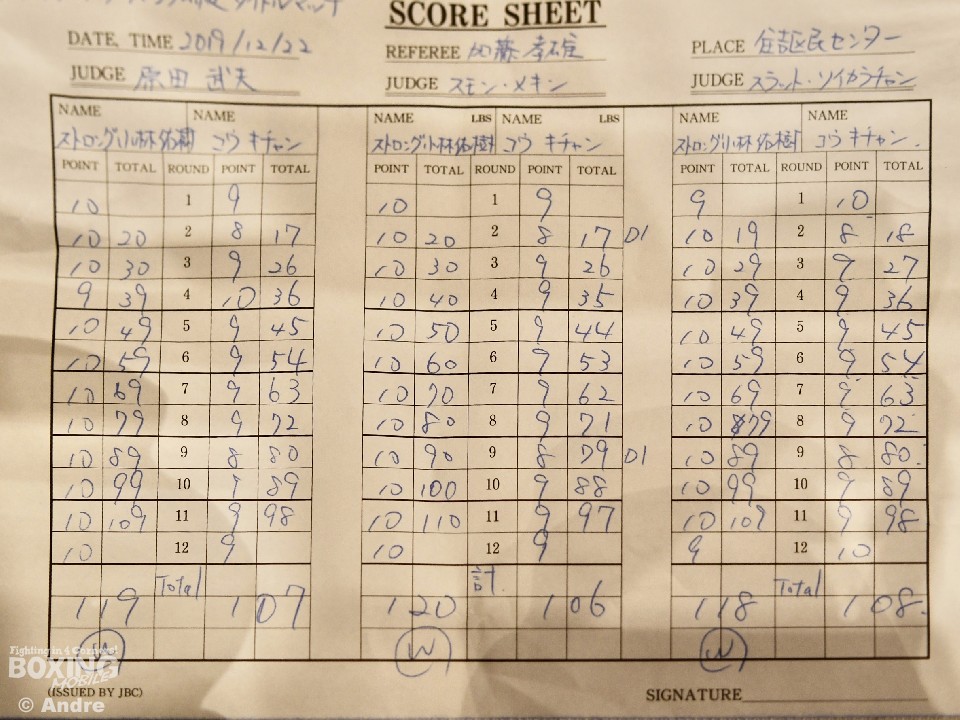 タイトルマッチ
SCORE SHEET
DATE, TIME 2019/12/22
REFEREE 加藤 孝雄
PLACE 住吉区民センター
JUDGE 原田 武夫
JUDGE スモン・メキン
JUDGE スラット・ソイカラチャン
NAME NAME NAME LBS NAME LBS NAME NAME
ストロング小林佑樹 コウ キチャン ストロング小林佑樹 コウ キチャン ストロング小林佑樹 コウ キチャン
POINT TOTAL ROUND POINT TOTAL POINT TOTAL ROUND POINT TOTAL POINT TOTAL ROUND POINT TOTAL
10 1 9 10 1 9 9 1 10
10 20 2 8 17 10 20 2 8 17 D1 10 19 2 8 18
10 30 3 9 26 10 30 3 9 26 10 29 3 9 27
9 39 4 10 36 10 40 4 9 35 10 39 4 9 36
10 49 5 9 45 10 50 5 9 44 10 49 5 9 45
10 59 6 9 54 10 60 6 9 53 10 59 6 9 54
10 69 7 9 63 10 70 7 9 62 10 69 7 9 63
10 79 8 9 72 10 80 8 9 71 10 79 8 9 72
10 89 9 8 80 10 90 9 8 79 D1 10 89 9 8 80
10 99 10 9 89 10 100 10 9 88 10 99 10 9 89
10 109 11 9 98 10 110 11 9 97 10 109 11 9 98
10 12 9 10 12 9 9 12 10
Total 計 Total
119 107 120 106 118 108
W W W
Fighting in 4 Corners!
BOXING
MOBILE
(ISSUED BY JBC)
SIGNATURE
© Andre